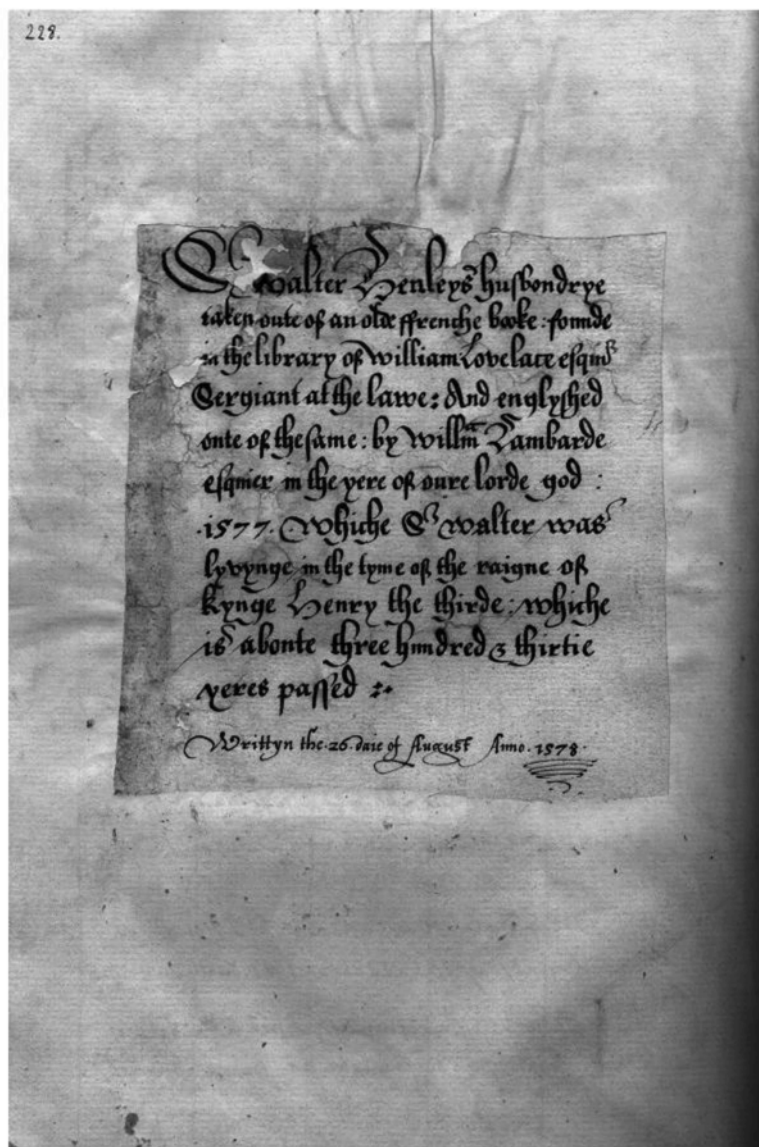 228.
Sr walter Henleys husbondrye
taken oute of an olde ffrenche booke: founde
in the library of William Lovelace esquier
Sergiant at the lawe: And englyshed
oute of the same: by Willm Lambarde
esquier in the yere of oure lorde god:
.1577. Whiche Sr walter was
lyvynge in the tyme of the raigne of
kynge Henry the thirde: whiche
is aboute three hundred & thirtie
yeres passed :~
Writtyn the .26. daie of August Anno .1578.